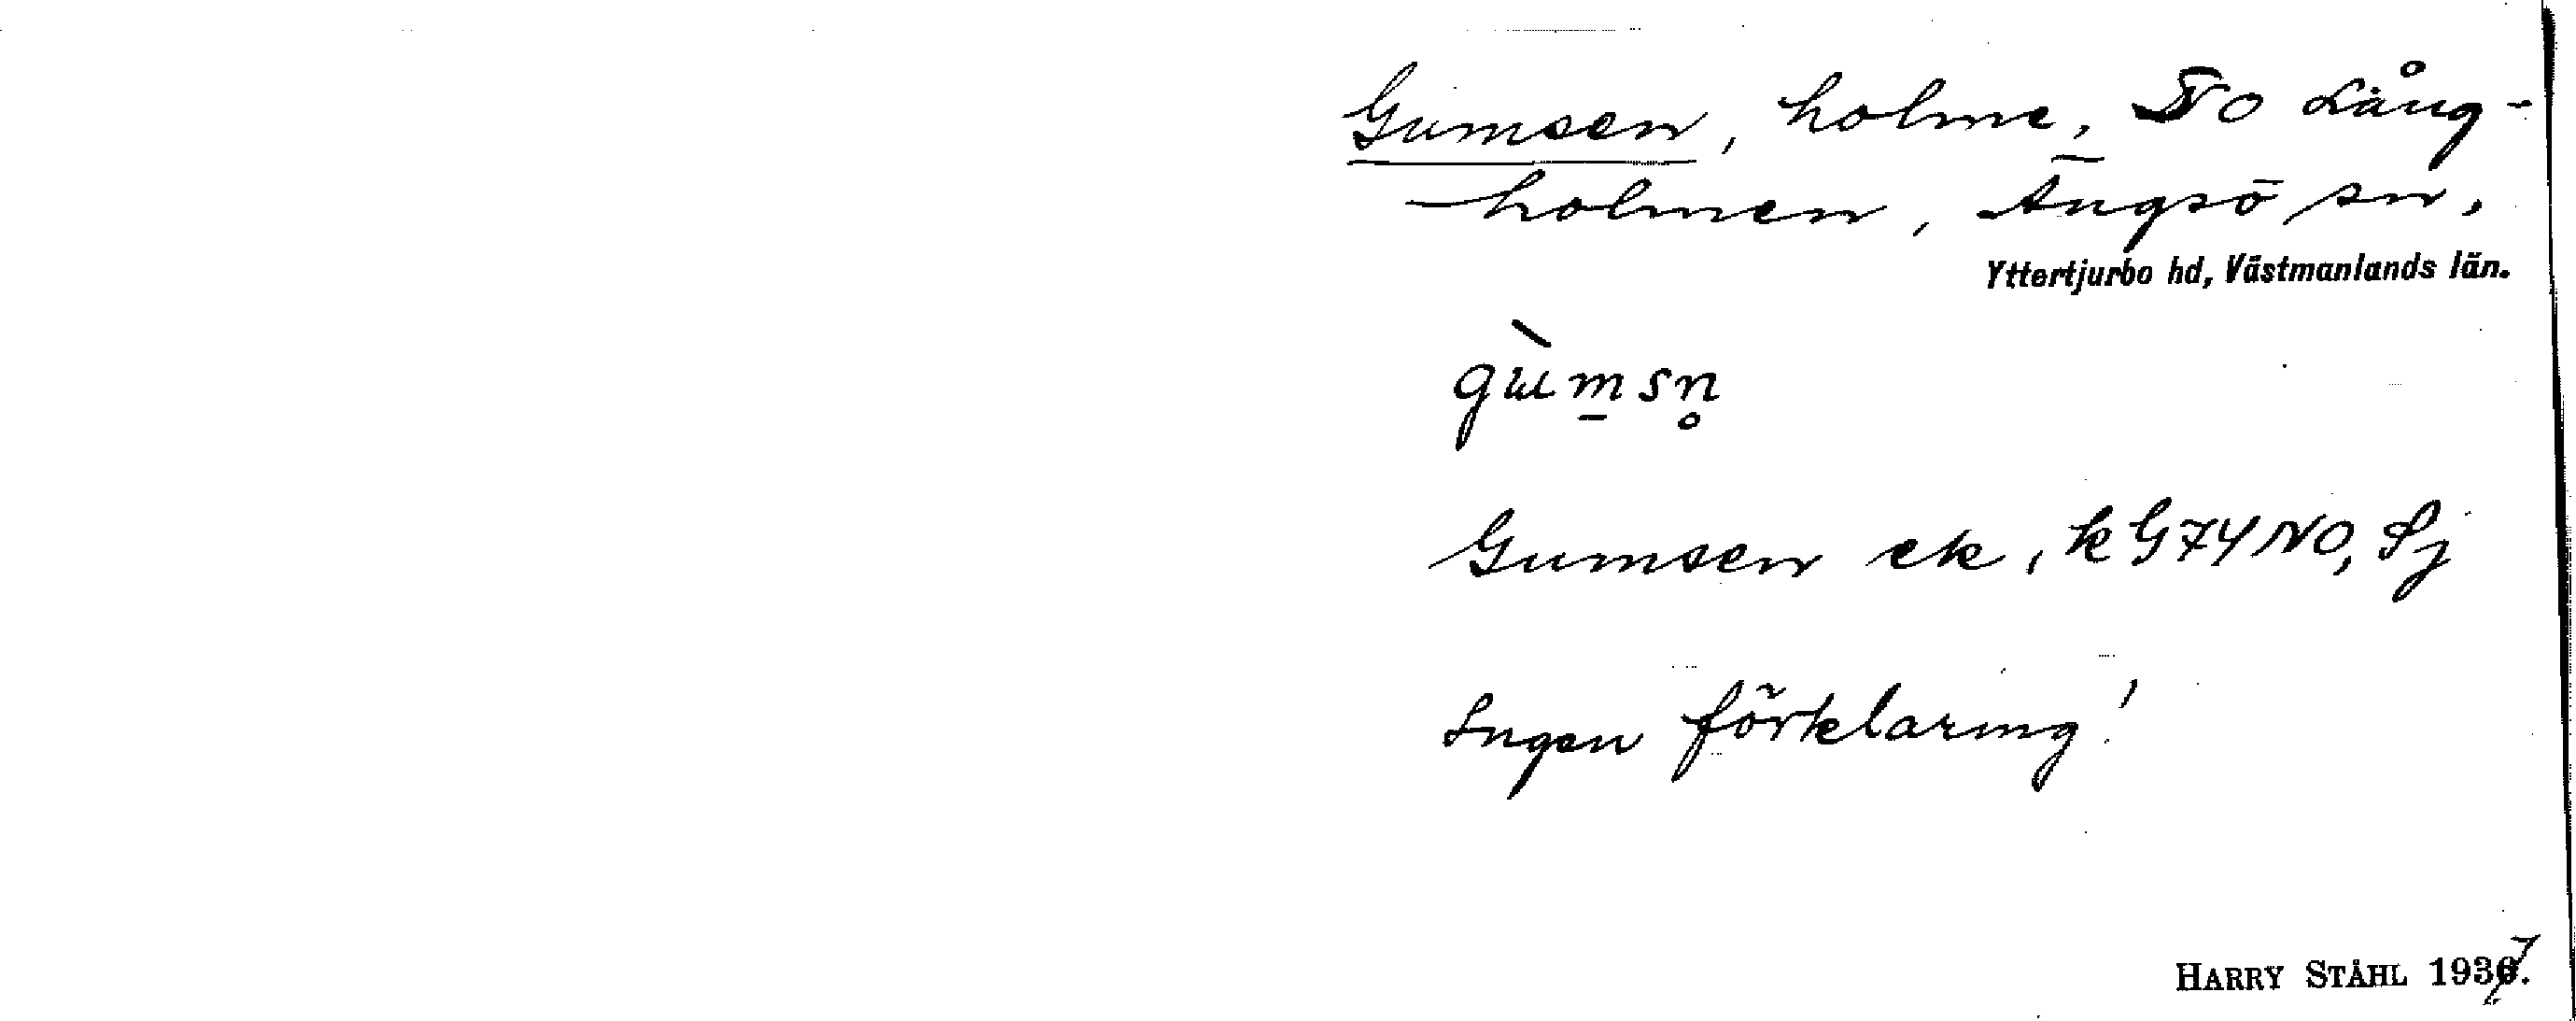 Gumsen, holme, NO Lång-
holmen, Ängsö sn,
Yttertjurbo hd, Västmanlands län.
gùmsn̥
Gumsen ek, k G74 NO, Sj
Ingen förklaring!
HARRY STÅHL 1937.